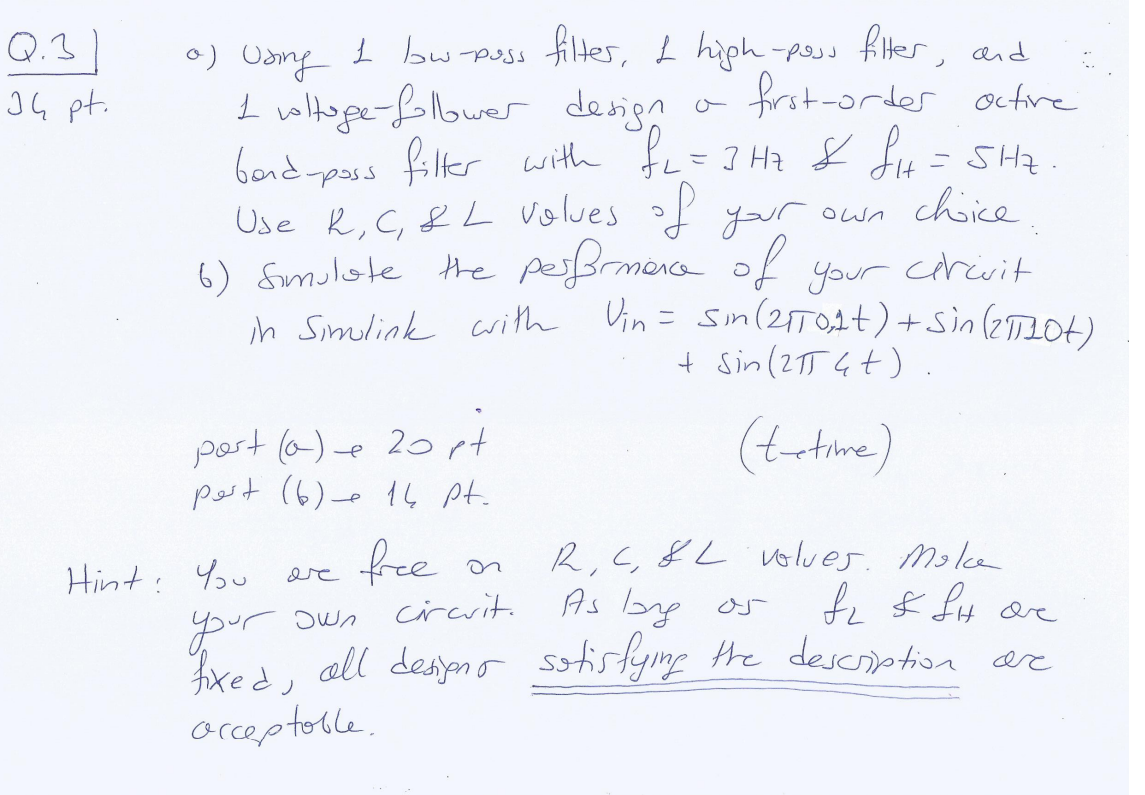 Q.3 a) Using 1 low-pass filter, 1 high-pass filter, and
34 pt. 1 voltage-follower design a first-order active
band-pass filter with fL = 3 Hz & fH = 5 Hz.
Use R, C, & L values of your own choice.
b) Simulate the performance of your circuit
in Simulink with Vin = sin(2π0,1t) + sin(2π10t)
+ sin(2π4t).
part (a) → 20 pt (t→time)
part (b) → 14 pt.
Hint: You are free on R, C, & L values. Make
your own circuit. As long as fL & fH are
fixed, all designs satisfying the description are
acceptable.